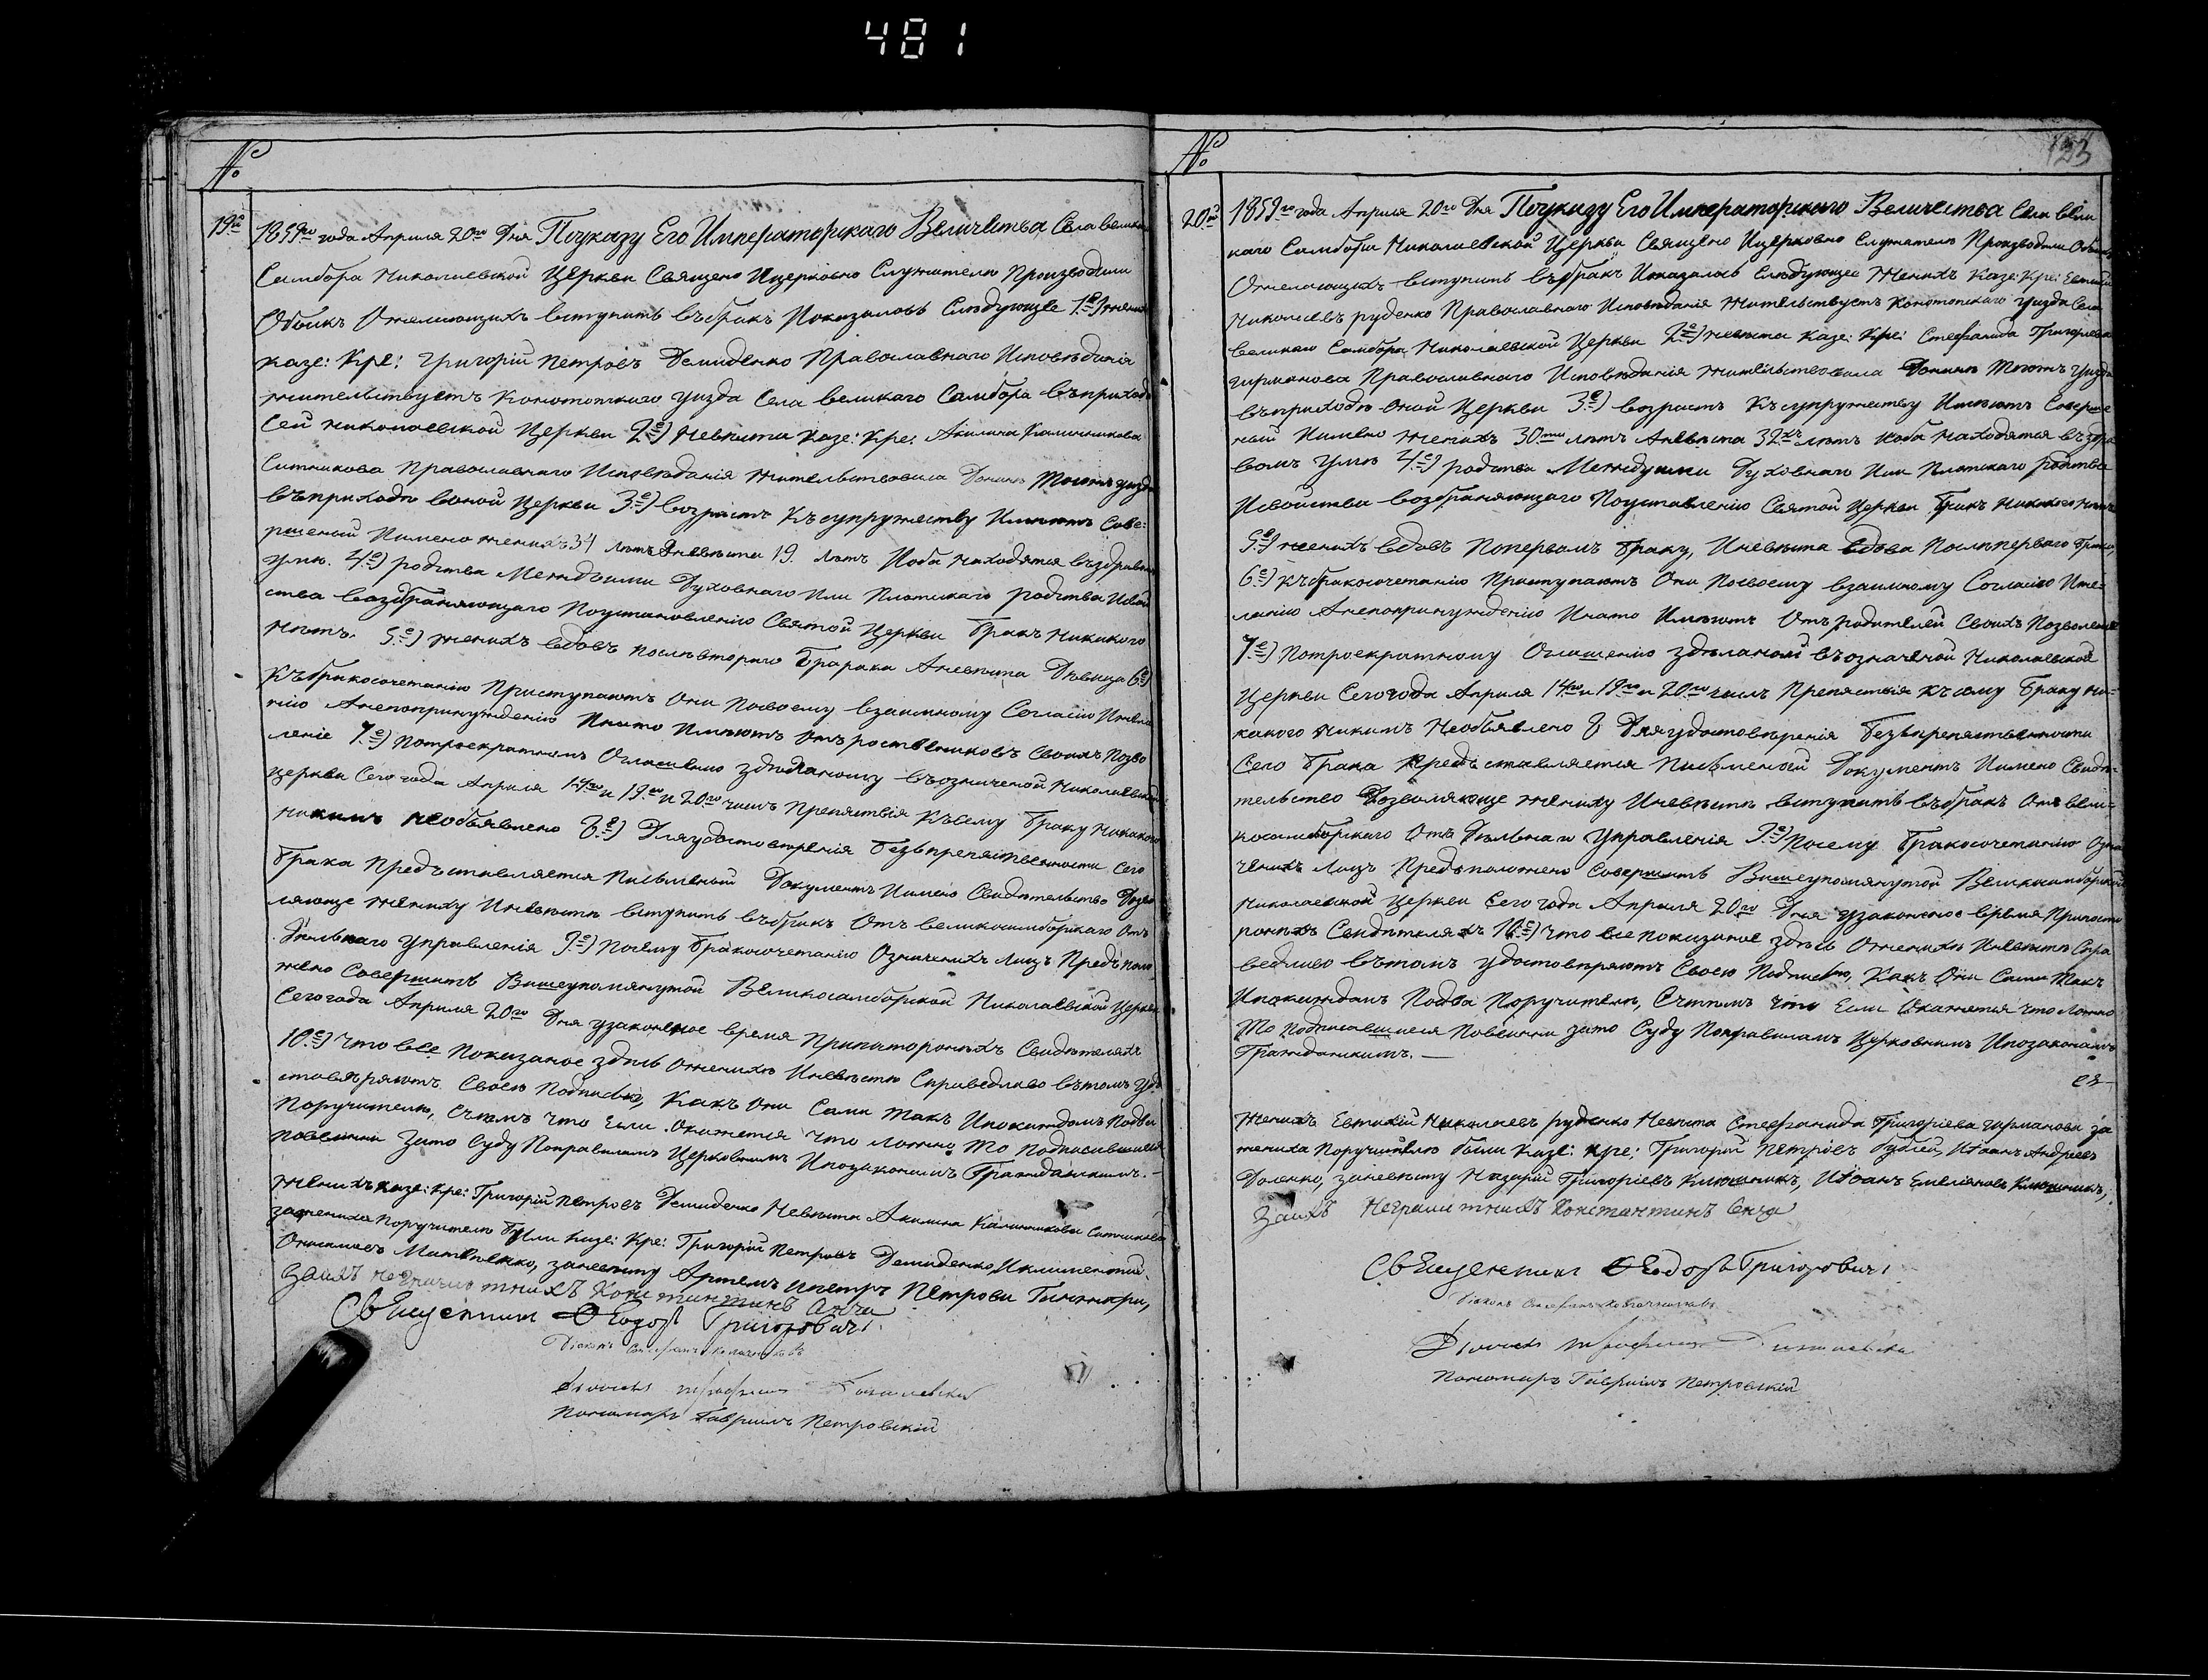 481
№
19й 1859го года Апреля 20го Дня Поуказу Его Императорскаго Величества Села великаго
Самбора Николаевской Церкви Священо Ицерковно Служители Производили
Обыскъ Ожелающихъ вступить въбракъ Иоказалось Слѣдующее 1е) женихъ
казе: Кре: Григорій Петровъ Демиденко Православнаго Исповѣданія
жительствуетъ Конотопскаго уизда Села великаго Самбора въприходѣ
Сей николаевской Церкви 2е) Невѣста Казе: Кре: Акилина Калинникова
Ситникова Православнаго Исповѣданія жительствовала Донинѣ Тогожъ уизда
въприходѣ воной Церкви 3е) возрастъ Къ супружеству Имѣютъ Сове:
ршеный Имено женихъ 34 лѣтъ Аневѣста 19. лѣтъ Иоба находятся въздравомъ
умѣ. 4е) родства Междъими Духовнаго Или Плотскаго родства Исвой
ства возбраняющаго Поустановленію Святой Церкви Бракъ никакого
нѣтъ. 5е) женихъ вдовъ послѣвтораго Брарака Аневѣста Дѣвица 6е)
Къбракосочетанію Приступаютъ Они Посвоему взаимному Согласію Ижела
нію Анепопринужденію Инато Имѣютъ Отъ роствениковъ Своихъ Позво
леніе 7е) Потроекратномъ Огласивію здѣланому възначеной Николаевской
церкви Сего года Апреля 14го и 19го и 20го чилъ Препятствія Къ сему Браку никакого
никимъ необъявлено 8е) Дляудостовѣренія Безъпрепятственности Сего
Брака Предъставляется Писменый Документъ Имено Свидѣтельство Дозво
ляюще жениху Иневѣстѣ вступить въбракъ Отъ великосамборскаго Отъ
Дѣльнаго Управленія 9е) Посему Бракосочетанію Означенихъ Лицъ Предъполо
жено Совершитъ Вишеупомянутой Великосамборской Николаевской Церкви
Сего года Апреля 20го Дня узаконеное время Припосторонѣхъ Свидѣтеляхъ
10е) Что все Показаное здѣсь Оженихѣ Иневѣстѣ Справедливо вътомъ удо
стовѣряютъ Своею Подписью, Какъ Они Сами Такъ Ипокаждомъ Подва
Поручителю, Сътѣмъ что Если Окажется что ложно То Подписавшиеся
повинни Зато Суду Поправиламъ Церковнимъ Ипозаконамъ Гражданскимъ. -
женихъ казе: Кре: Григорій Петровъ Демиденко Невѣста Акилина Калинникова Ситникова
зажениха Поручителю Були Казе: Кре: Григорій Петровъ Демиденко, Иклиментій
Онисимовъ Матвѣенко, заневѣсту Артемъ ипетръ Петрови Гинжари,
Заихъ неграмотнихъ Константинъ Сенча
Священикъ Ѳеодоръ Григоровичъ
Діаконъ Стефанъ
Діячокъ
Пономаръ Гавріилъ Петровскій
№
123
20й 1859го года Апреля 20го Дня Поуказу Его Императорскаго Величества Села вели
каго Самбора Николаевской Церкви Священо Ицерковно Служители Производили Обыскъ
Ожелающихъ вступить въбракъ Иоказалось Слѣдующее Женихъ Казе: Кре: Евтихій
Николаевъ руденко Православнаго Исповѣданія жительствуетъ Конотопскаго уизда Села
великаго Самбора Николаевской Церкви 2е) невѣста Казе: Кре: Стефанида Григорієва
гирманова Православнаго Исповѣданія жительствовала Донинѣ Тогожъ Уизда
въприходѣ оной Церкви 3е) возрастъ Къ супружеству Имѣютъ Соверше
ный Имено женихъ 30ти лѣтъ Аневѣста 32хъ лѣтъ Иоба находятся въздра
вомъ Умѣ 4е) родства Междуими Духовнаго Или Плотскаго родства
Исвойства возбраняющаго Поуставленію Святой Церкви Бракъ никакого нѣтъ
5е) женихъ вдовъ Попервомъ Браку, Иневѣста вдова Послѣперваго Брака,
6е) Къбракосочетанію Приступаютъ Они Посвоему взаимному Согласію Иже-
ланію Анепопринужденію Инато Имѣютъ Отъродителей Своихъ Позволеніе
7е) Потроекратному Оглашенію здѣланой възначеной Николаевской
Церкви Сегогода Апреля 14го и 19го и 20го чилъ Препятствія Къ сему Браку ни-
какого никимъ Необъявлено 8 Дляудостовѣренія Безъпрепятственности
Сего Брака Предъставляется Писменой Документъ Имено Свидѣ-
тельство Дозволяюще жениху Иневѣстѣ вступить въбракъ Отъ вели-
косамборскаго Отъ Дѣльнаго Управленія 9е) Посему Бракосочетанію Озна
ченихъ Лицъ Предъположено Совершить Вишеупомянутой Великосамборской
Николаевской Церкви Сего года Апреля 20го Дня узаконеное время Припосто
ронѣхъ Свидѣтеляхъ 10е) Что все показаное здѣсь Оженихѣ Иневѣстѣ Спра
ведливо вътомъ удостовѣряютъ Своею Подписью, Какъ Они Сами Такъ
Ипокаждомъ Подва Поручителю, Сътѣмъ Что Если Окажется что ложно
То Подписавшиеся Повинни зато Суду Поправиламъ Церковнимъ Ипозаконамъ
Гражданскимъ. —
Женихъ Евтихій Николаевъ руденко Невѣста Стефанида Григорієва гирманова за
жениха Поручителю були Казе: Кре: Григорій Петровъ Бублій, Иоанъ Андреевъ
Доленко, заневѣсту Назарій Григорієвъ Ключникъ, Иоанъ Емеліяновъ Ключникъ,
Заихъ Неграмотнихъ Константинъ Сенча
Священикъ Ѳеодоръ Григоровичъ
Діаконъ Стефанъ
Діячокъ
Пономаръ Гавріилъ Петровскій